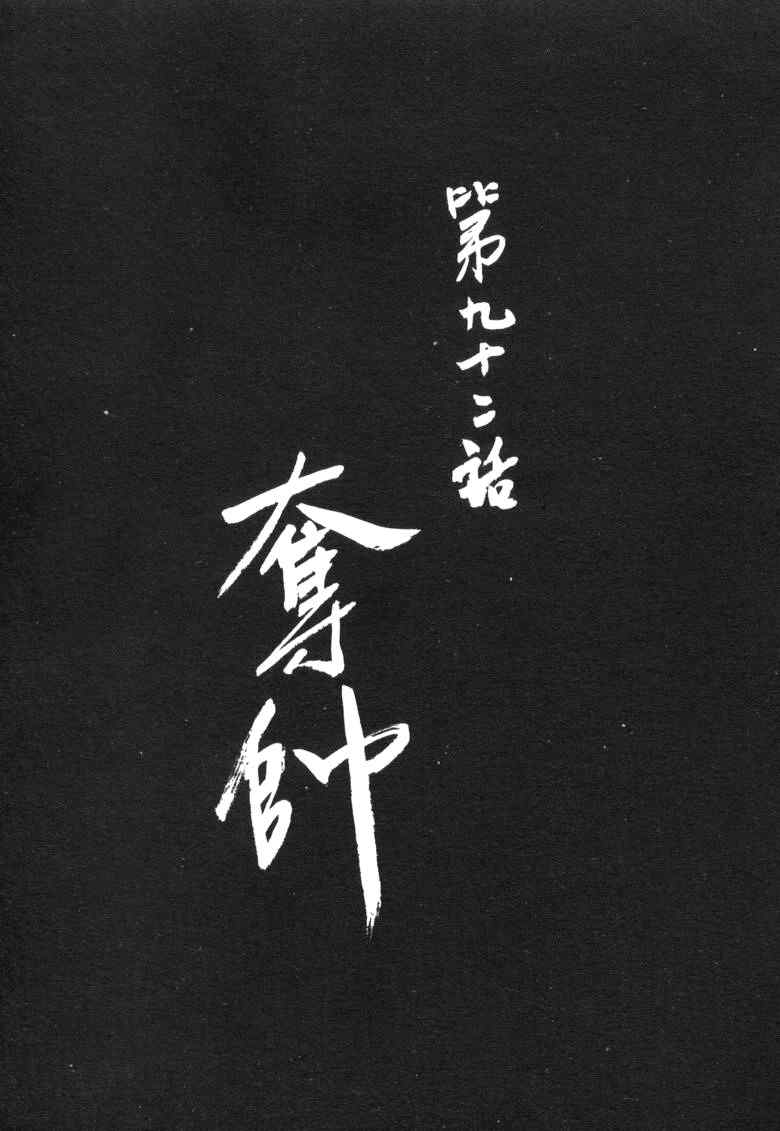 第九十二話
奪帥